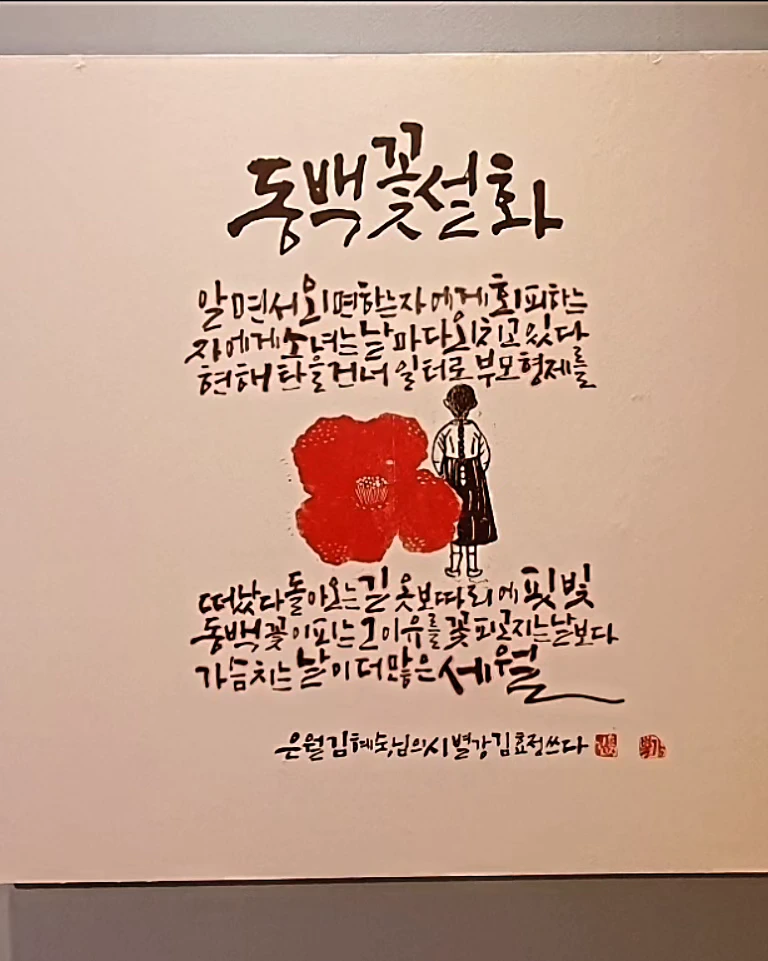 동백꽃 설화
알면서 외면하는 자에게 회피하는
자에게 소녀는 날마다 외치고 있다
현해탄을 건너 일터로 부모형제를
떠났다 돌아오는 길 옷보따리에 핏빛
동백꽃이 피는 그 이유를 꽃 피고 지는 날보다
가슴 치는 날이 더 많은 세월
은월 김혜숙님의 시 별강 김효정 쓰다